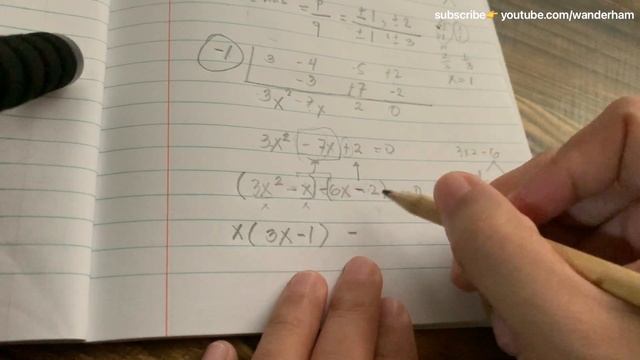 subscribe👉 youtube.com/wanderham
= p/q = ±1, ±2 / ±1, ±3
-1 | 3 -4 -5 +2
-3 +7 -2
3x² -7x 2 0
x=1
3x² - 7x + 2 = 0
(3x² - x) - (6x - 2) = 0
x(3x-1) -